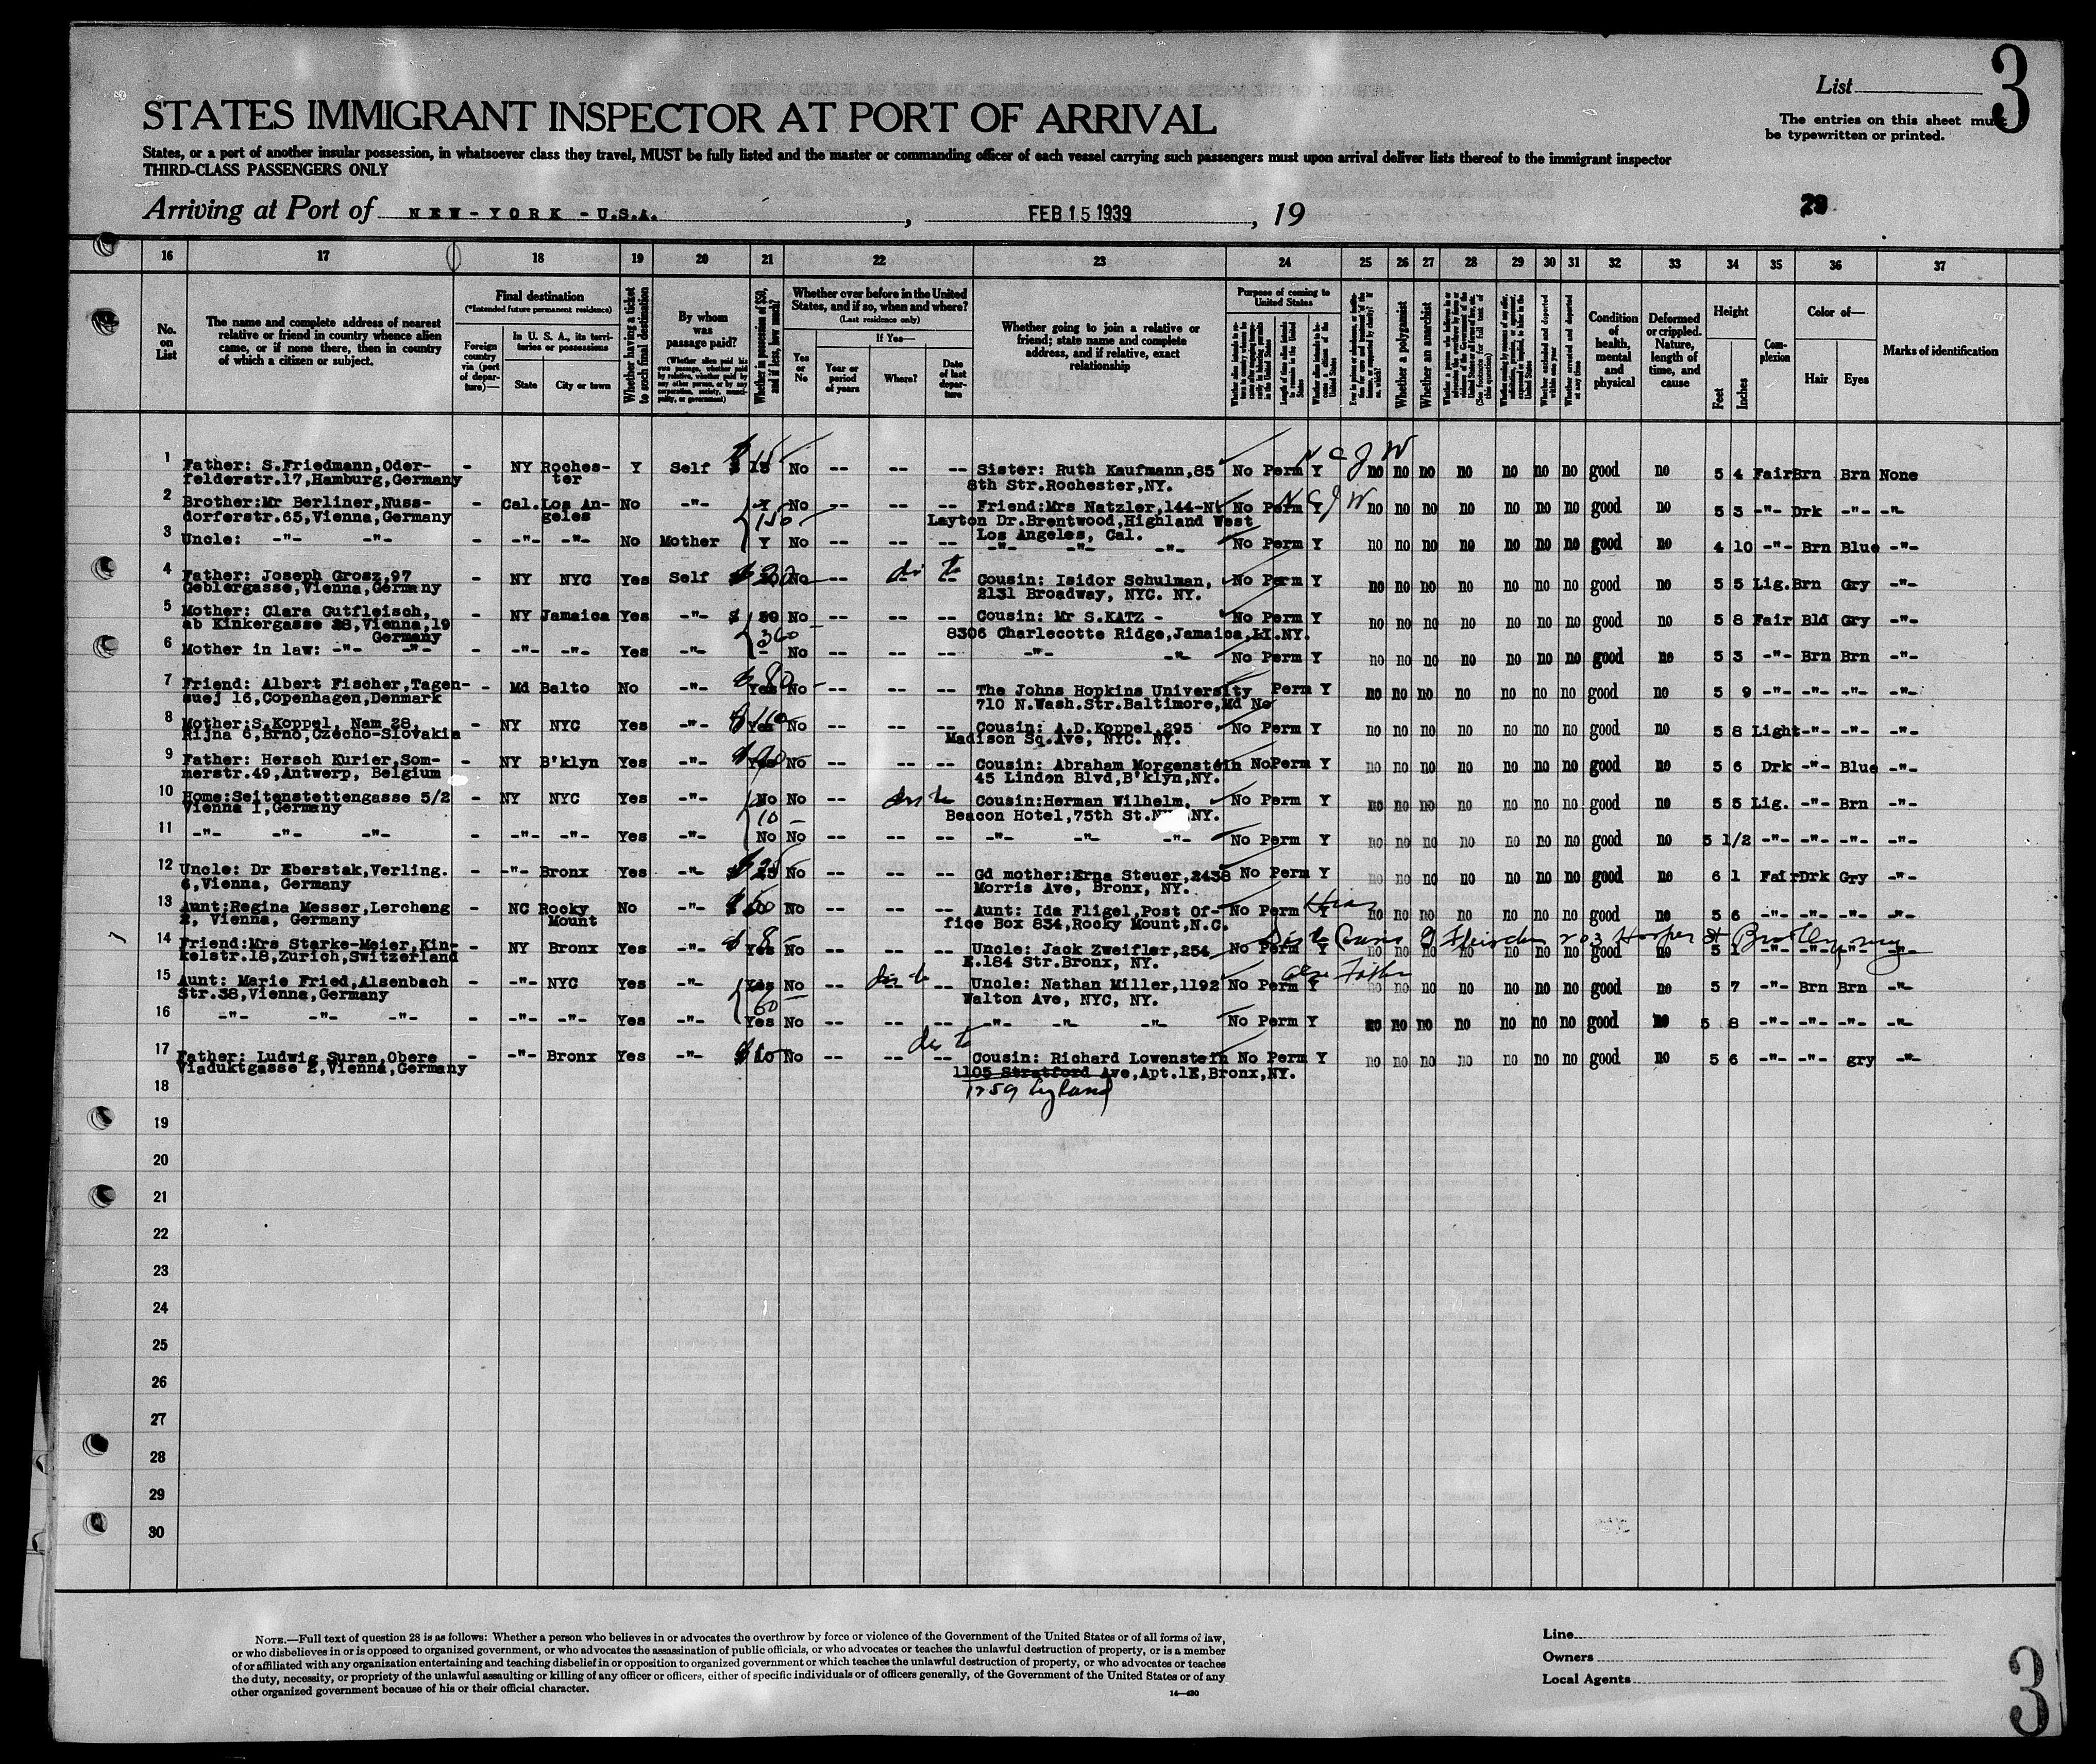 List 3
The entries on this sheet must
be typewritten or printed.
STATES IMMIGRANT INSPECTOR AT PORT OF ARRIVAL
States, or a port of another insular possession, in whatsoever class they travel, MUST be fully listed and the master or commanding officer of each vessel carrying such passengers must upon arrival deliver lists thereof to the immigrant inspector
THIRD-CLASS PASSENGERS ONLY
Arriving at Port of NEW-YORK-U.S.A. , FEB 15 1939 , 19
16 17 18 19 20 21 22 23 24 25 26 27 28 29 30 31 32 33 34 35 36 37
No. on List
The name and complete address of nearest relative or friend in country whence alien came, or if none there, then in country of which a citizen or subject.
Final destination
(*Intended future permanent residence)
Foreign country via (port of departure)—
In U. S. A., its territories or possessions
State City or town
Whether having a ticket to such final destination
By whom was passage paid?
(Whether alien paid his own passage, whether paid by relative, whether paid by any other person, or by any corporation, society, municipality, or government)
Whether in possession of $50, and if less, how much?
Whether ever before in the United States, and if so, when and where?
(Last residence only)
Yes or No
If Yes—
Year or period of years Where? Date of last departure
Whether going to join a relative or friend; state name and complete address, and if relative, exact relationship
Purpose of coming to United States
Length of time alien intends to remain in the United States
Whether alien intends to become a citizen of the United States
Whether a polygamist
Whether an anarchist
(See footnote for full text of this question)
Whether excluded and deported within one year
Whether arrested and deported at any time
Condition of health, mental and physical
Deformed or crippled. Nature, length of time, and cause
Height
Feet Inches
Complexion
Color of—
Hair Eyes
Marks of identification
N C J W
1 Father: S.Friedmann,Oder- - NY Roches- Y Self $ 15 No -- -- -- Sister: Ruth Kaufmann,85 No Perm Y no no no no no no no good no 5 4 Fair Brn Brn None
felderstr.17,Hamburg,Germany ter 8th Str.Rochester,NY.
2 Brother:Mr Berliner,Nuss- - Cal. Los An- No -"- Y No -- -- -- Friend:Mrs Natzler,144-N No Perm Y N C J W no no no no no no no good no 5 3 -"- Drk -"- -"-
dorferstr.65,Vienna,Germany geles 150 Layton Dr.Brentwood,Highland West
Los Angeles, Cal.
3 Uncle: -"- -"- - -"- -"- No Mother Y No -- -- -- -"- -"- -"- No Perm Y no no no no no no no good no 4 10 -"- Brn Blue -"-
4 Father: Joseph Grosz,97 - NY NYC Yes Self $ 20 No -- -- -- Cousin: Isidor Schulman, No Perm Y no no no no no no no good no 5 5 Lig. Brn Gry -"-
Geblergasse,Vienna,Germany 2131 Broadway, NYC. NY.
5 Mother: Clara Gutfleisch, - NY Jamaica Yes -"- $ 50 No -- -- -- Cousin: Mr S.KATZ - No Perm Y no no no no no no no good no 5 8 Fair Bld Gry -"-
ab Kinkergasse 28,Vienna,19 300 8306 Charlecotte Ridge,Jamaica,LI.NY.
Germany
6 Mother in law: -"- -"- - -"- -"- Yes -"- - No -- -- -- -"- -"- No Perm Y no no no no no no no good no 5 3 -"- Brn Brn -"-
7 Friend: Albert Fischer,Tagen- - Md Balto No -"- $ 80 Yes No The Johns Hopkins University Perm Y no no no no no no no good no 5 9 -"- -"- -"- -"-
suej 16,Copenhagen,Denmark 710 N.Wash.Str.Baltimore,Md No
8 Mother:S.Koppel, Nam 28, - NY NYC Yes -"- $110 Yes No -- -- -- Cousin: A.D.Koppel,295 No Perm Y no no no no no no no good no 5 8 Light -"- -"- -"-
Rijna 6,Brno,Czecho-Slovakia Madison Sq.Ave, NYC. NY.
9 Father: Hersch Kurier,Som- - NY B'klyn Yes -"- No -- -- -- Cousin: Abraham Morgenstein No Perm Y no no no no no no no good no 5 6 Drk -"- Blue -"-
merstr.49,Antwerp, Belgium 45 Linden Blvd,B'klyn,NY.
10 Home:Seitenstettengasse 5/2 - NY NYC Yes -"- No No -- Cousin:Herman Wilhelm, No Perm Y no no no no no no no good no 5 5 Lig. -"- Brn -"-
Vienna I,Germany 10 Beacon Hotel,75th St. NY.
11 -"- -"- -"- - -"- -"- Yes -"- No No -- -- -- -"- -"- -"- No Perm Y no no no no no no no good no 5 1/2 -"- -"- -"- -"-
12 Uncle: Dr Eberstak,Verling. - -"- Bronx Yes -"- $ 25 No -- -- -- Gd mother:Erna Steuer,2438 No Perm Y no no no no no no no good no 6 1 Fair Drk Gry -"-
6,Vienna, Germany Morris Ave, Bronx, NY.
13 Aunt:Regina Messer,Lercheng - NC Rocky No -"- $ 50 No -- -- -- Aunt: Ida Fligel,Post Of- No Perm Y Hias no no no no no no no good no 5 6 -"- -"- -"- -"-
2, Vienna, Germany Mount fice Box 834,Rocky Mount,N.C.
14 Friend:Mrs Starke-Meier,Kin- - NY Bronx Yes -"- $ 8 Yes No -- -- -- Uncle: Jack Zweifler,254 No Perm Y no no no no no no no good no 5 1 -"- -"- -"- -"-
kelstr.18,Zurich,Switzerland E.184 Str.Bronx, NY. 203 Hooper St Brooklyn
15 Aunt: Marie Fried,Alsenbach - -"- NYC Yes -"- Yes No -- Uncle: Nathan Miller,1192 No Perm Y no no no no no no no good no 5 7 -"- Brn Brn -"-
Str.38,Vienna,Germany 60 Walton Ave, NYC, NY.
16 -"- -"- -"- - -"- -"- Yes -"- Yes No -- -- -- -"- -"- -"- No Perm Y no no no no no no no good no 5 8 -"- -"- -"- -"-
17 Father: Ludwig Suran,Obere - -"- Bronx Yes -"- $ 10 No -- -- Cousin: Richard Lowenstein No Perm Y no no no no no no no good no 5 6 -"- -"- gry -"-
Viaduktgasse 2,Vienna,Germany 1105 Stratford Ave,Apt.1E,Bronx,NY.
18
19
20
21
22
23
24
25
26
27
28
29
30
NOTE.—Full text of question 28 is as follows: Whether a person who believes in or advocates the overthrow by force or violence of the Government of the United States or of all forms of law,
or who disbelieves in or is opposed to organized government, or who advocates the assassination of public officials, or who advocates or teaches the unlawful destruction of property, or is a member
of or affiliated with any organization entertaining and teaching disbelief in or opposition to organized government or which teaches the unlawful destruction of property, or who advocates or teaches
the duty, necessity, or propriety of the unlawful assaulting or killing of any officer or officers, either of specific individuals or of officers generally, of the Government of the United States or of any
other organized government because of his or their official character.
14—480
Line
Owners
Local Agents
3